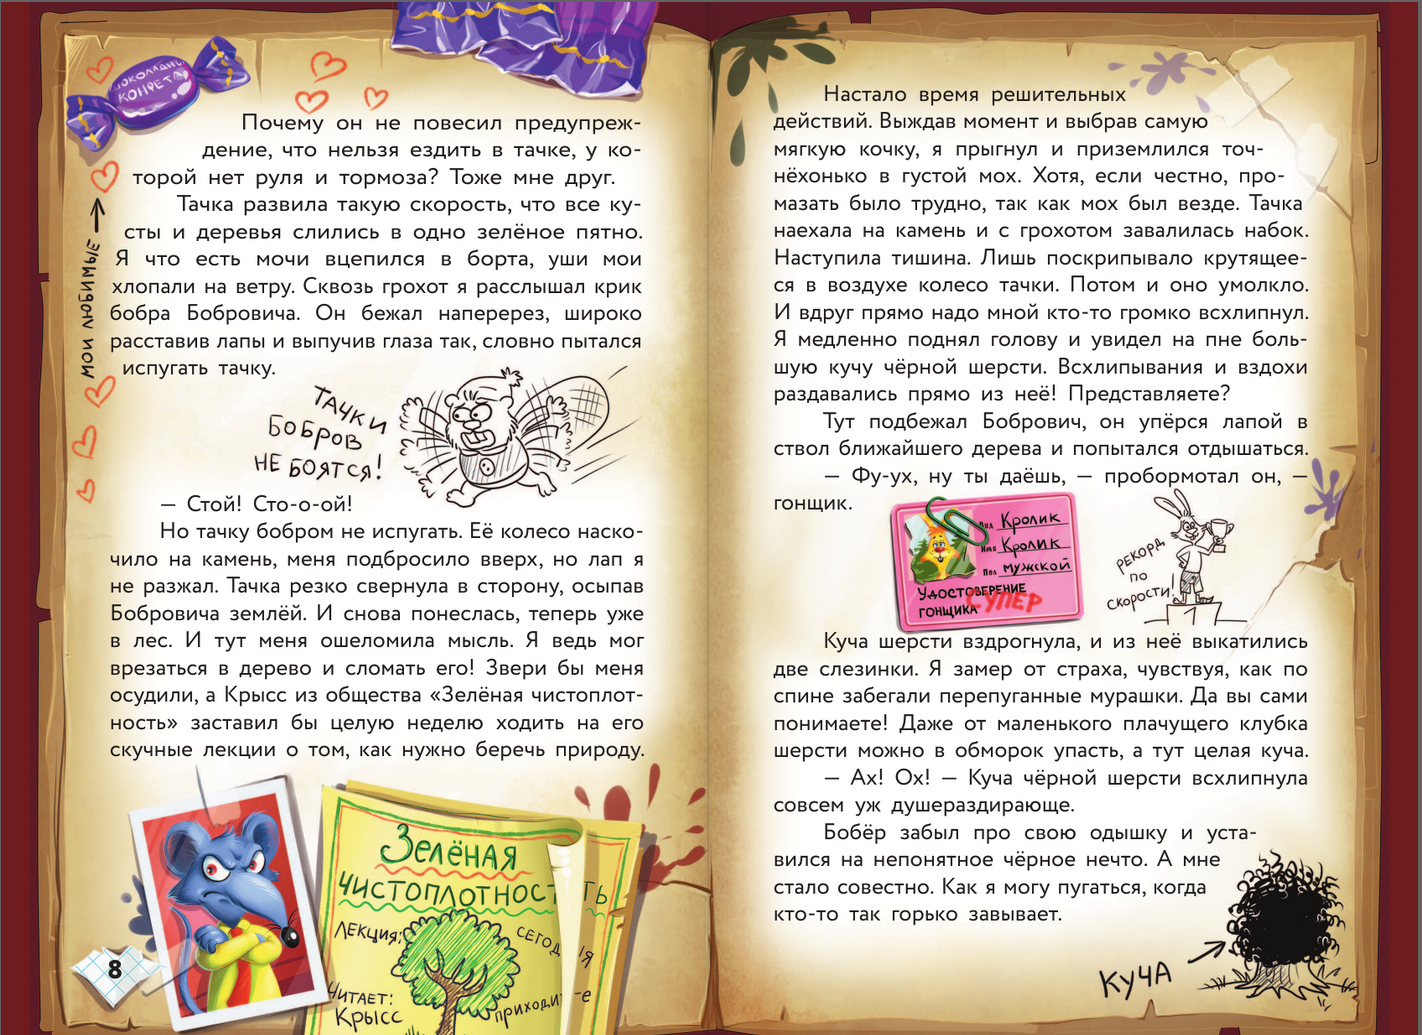 ШОКОЛАДНАЯ
КОНФЕТА
МОИ ЛЮБИМЫЕ
Почему он не повесил предупреж-
дение, что нельзя ездить в тачке, у ко-
торой нет руля и тормоза? Тоже мне друг.
Тачка развила такую скорость, что все ку-
сты и деревья слились в одно зелёное пятно.
Я что есть мочи вцепился в борта, уши мои
хлопали на ветру. Сквозь грохот я расслышал крик
бобра Бобровича. Он бежал наперерез, широко
расставив лапы и выпучив глаза так, словно пытался
испугать тачку.
ТАЧКИ
БОБРОВ
НЕ БОЯТСЯ!
— Стой! Сто-о-ой!
Но тачку бобром не испугать. Её колесо наско-
чило на камень, меня подбросило вверх, но лап я
не разжал. Тачка резко свернула в сторону, осыпав
Бобровича землёй. И снова понеслась, теперь уже
в лес. И тут меня ошеломила мысль. Я ведь мог
врезаться в дерево и сломать его! Звери бы меня
осудили, а Крысс из общества «Зелёная чистоплот-
ность» заставил бы целую неделю ходить на его
скучные лекции о том, как нужно беречь природу.
Зелёная
чистоплотность
ЛЕКЦИЯ:
СЕГОД
Я
ЧИТАЕТ:
Крысс
приходите
8
Настало время решительных
действий. Выждав момент и выбрав самую
мягкую кочку, я прыгнул и приземлился точ-
нёхонько в густой мох. Хотя, если честно, про-
мазать было трудно, так как мох был везде. Тачка
наехала на камень и с грохотом завалилась набок.
Наступила тишина. Лишь поскрипывало крутящее-
ся в воздухе колесо тачки. Потом и оно умолкло.
И вдруг прямо надо мной кто-то громко всхлипнул.
Я медленно поднял голову и увидел на пне боль-
шую кучу чёрной шерсти. Всхлипывания и вздохи
раздавались прямо из неё! Представляете?
Тут подбежал Бобрович, он упёрся лапой в
ствол ближайшего дерева и попытался отдышаться.
— Фу-ух, ну ты даёшь, — пробормотал он, —
гонщик.
Вид Кролик
Имя Кролик
Пол мужской
Удостоверение
гонщика
СУПЕР
РЕКОРД
ПО
СКОРОСТИ!
Куча шерсти вздрогнула, и из неё выкатились
две слезинки. Я замер от страха, чувствуя, как по
спине забегали перепуганные мурашки. Да вы сами
понимаете! Даже от маленького плачущего клубка
шерсти можно в обморок упасть, а тут целая куча.
— Ах! Ох! — Куча чёрной шерсти всхлипнула
совсем уж душераздирающе.
Бобёр забыл про свою одышку и уста-
вился на непонятное чёрное нечто. А мне
стало совестно. Как я могу пугаться, когда
кто-то так горько завывает.
КУЧА